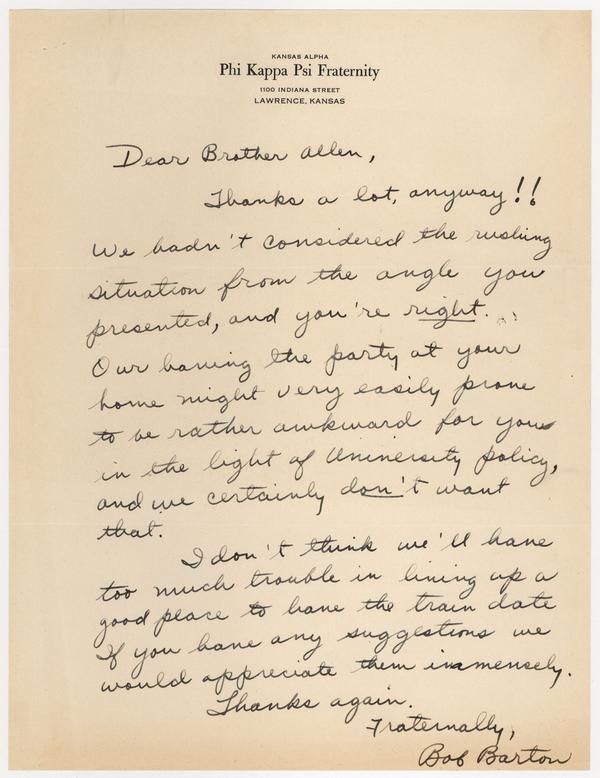 KANSAS ALPHA
Phi Kappa Psi Fraternity
1100 INDIANA STREET
LAWRENCE, KANSAS
Dear Brother Allen,
Thanks a lot, anyway!!
We hadn't considered the rushing
situation from the angle you
presented, and you're right.
Our having the party at your
home might very easily prove
to be rather awkward for you
in the light of University policy,
and we certainly don't want
that.
I don't think we'll have
too much trouble in lining up a
good place to have the train date
If you have any suggestions we
would appreciate them immensely.
Thanks again.
Fraternally,
Bob Barton